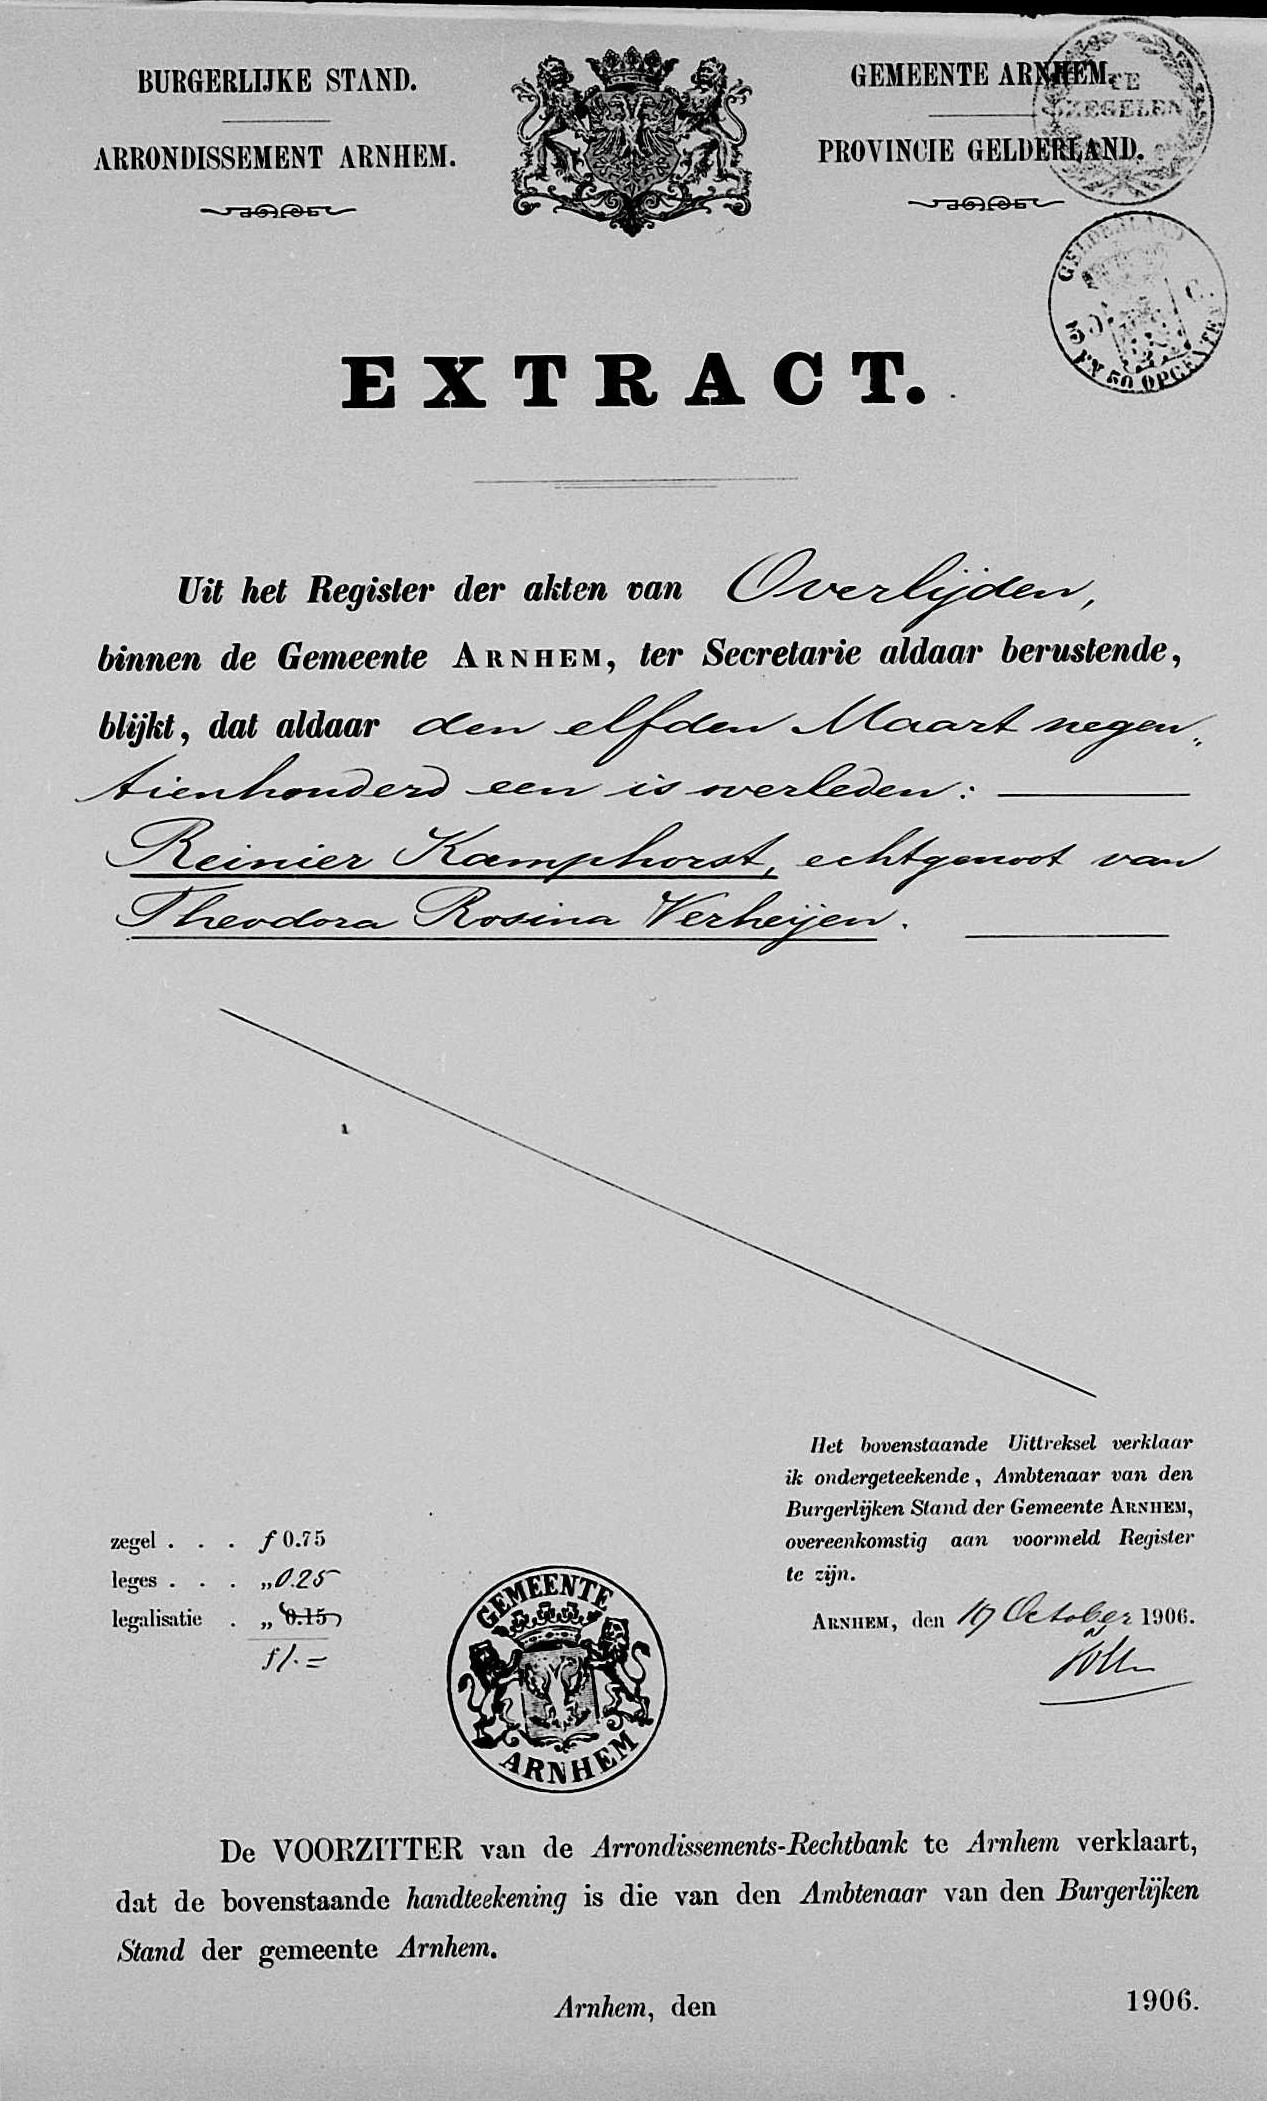 BURGERLIJKE STAND.
ARRONDISSEMENT ARNHEM.
GEMEENTE ARNHEM.
PROVINCIE GELDERLAND.
TE
ZEGELEN
GELDERLAND
50 C.
EN 50 OPCENTEN
EXTRACT.
Uit het Register der akten van Overlijden,
binnen de Gemeente ARNHEM, ter Secretarie aldaar berustende,
blijkt, dat aldaar den elfden Maart negen„
tienhonderd een is overleden:
Reinier Kamphorst, echtgenoot van
Theodora Rosina Verheijen.
Het bovenstaande Uittreksel verklaar
ik ondergeteekende, Ambtenaar van den
Burgerlijken Stand der Gemeente ARNHEM,
overeenkomstig aan voormeld Register
te zijn.
ARNHEM, den 19 October 1906.
zegel . . . f 0.75
leges . . . „ 0.25
legalisatie . „ 0.15
f 1.=
GEMEENTE
ARNHEM
De VOORZITTER van de Arrondissements-Rechtbank te Arnhem verklaart,
dat de bovenstaande handteekening is die van den Ambtenaar van den Burgerlijken
Stand der gemeente Arnhem.
Arnhem, den 1906.